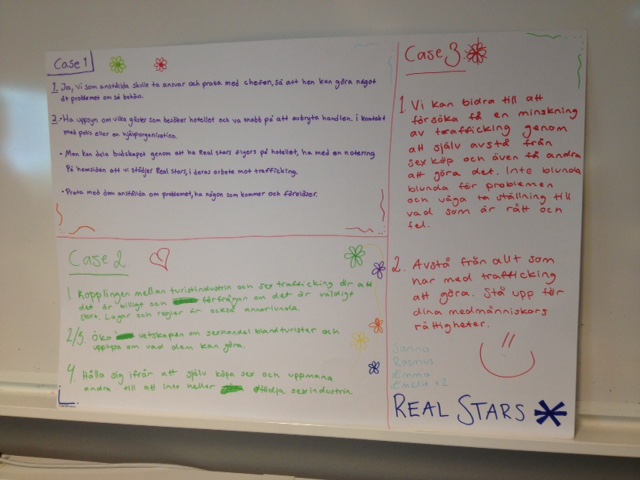 Case 1
1. Ja, vi som anställda skulle ta annvar och prata med chefen, så att hen kan göra något
åt problemet om så behöv.
2. • Ha uppsyn om vilka gäster som besöker hotellet och va snabb på att avbryta handlen. i kontakt
med polis eller en hjälporganisation.
• Man kan dela budskapet genom att ha Real Stars flyers på hotellet, ha med en notering
På hemsidan att vi stödjer Real Stars, i deras arbete mot trafficking.
• Prata med dom anställda om problemet, ha någon som kommer och föreläser.
Case 2
1. Kopplingen mellan turistindustrin och sex trafficking är att
det är billigt och förfrågan om det är väldigt
stort. Lagar och regler är också annorlunda.
2/3. Öka vetskapen om sexhandel bland turister och
upplysa om vad dem kan göra.
4. Hålla sig ifrån att själv köpa sex och uppmana
andra till att inte heller stödja sexindustrin
Case 3
1 Vi kan bidra till att
försöka få en minskning
av trafficking genom
att själv avstå från
sexköp och även få andra
att göra det. Inte blunda
blunda för problemen
och våga ta ställning till
vad som är rätt och
fel.
2. Avstå från allt som
har med trafficking
att göra. Stå upp för
dina medmänniskors
rättigheter.
Sanna
Rasmus
Emma
Emelie x2
REAL STARS